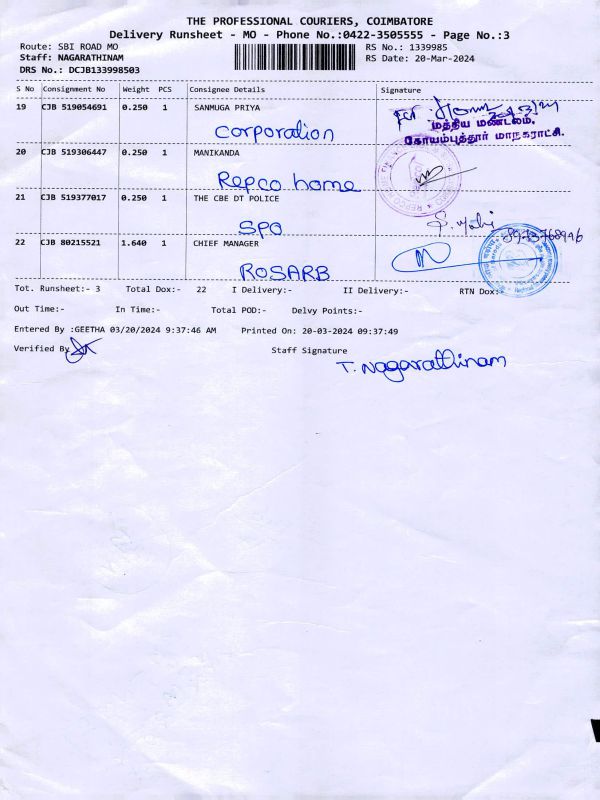 THE PROFESSIONAL COURIERS, COIMBATORE
Delivery Runsheet - MO - Phone No.:0422-3505555 - Page No.:3
Route: SBI ROAD MO RS No.: 1339985
Staff: NAGARATHINAM RS Date: 20-Mar-2024
DRS No.: DCJB133998503
S No Consignment No Weight PCS Consignee Details Signature
19 CJB 519054691 0.250 1 SANMUGA PRIYA
Corporation
மத்திய மண்டலம்.
கோயம்புத்தூர் மாநகராட்சி.
20 CJB 519306447 0.250 1 MANIKANDA
Repco home
21 CJB 519377017 0.250 1 THE CBE DT POLICE
SPO
22 CJB 80215521 1.640 1 CHIEF MANAGER
ROSARB
Tot. Runsheet:- 3 Total Dox:- 22 I Delivery:- II Delivery:- RTN Dox:-
Out Time:- In Time:- Total POD:- Delvy Points:-
Entered By :GEETHA 03/20/2024 9:37:46 AM Printed On: 20-03-2024 09:37:49
Verified By Staff Signature
T. Nagarathinam